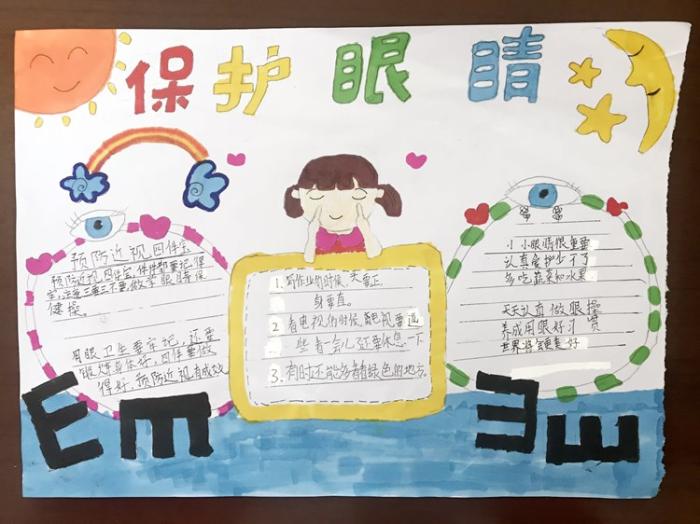 保护眼睛
预防近视四件宝
预防近视四件宝,件件都要记得
牢,注意三要三不要,做字眼睛保
健操。
用眼卫生要牢记,还要
锻炼身体好,四件要做
得好,预防近视有成效
1. 写作业的时候,头要正
身要直。
2. 看电视的时候,离电视要远
些看一会儿还要休息一下
3. 有时还能多看看绿色的地方
小小眼睛很重要
认真爱护少不了
多吃蔬菜和水果
天天认真做眼操
养成用眼好习惯
世界将更美好
E
m
E
E